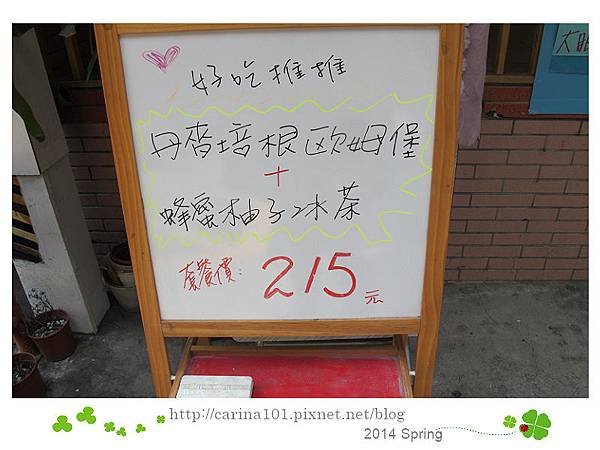 好吃推推
丹麥培根歐姆堡
+
蜂蜜柚子冰茶
套餐價: 215元
http://carina101.pixnet.net/blog
2014 Spring